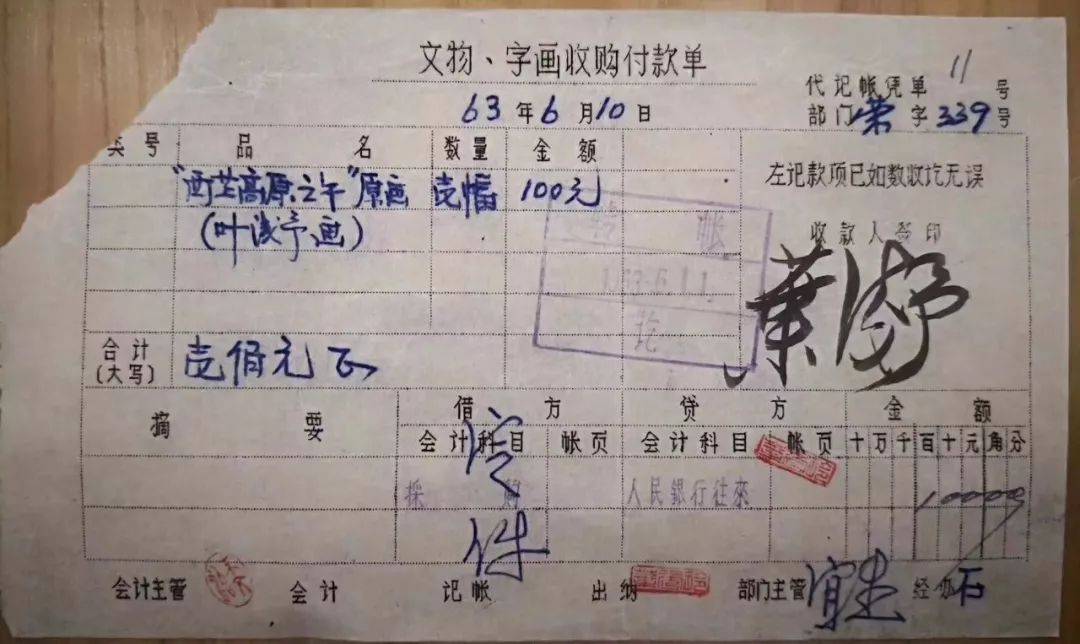 文物、字画收购付款单
代记帐凭单 11 号
63年6月10日
部门荣字339号
类号 品名 数量 金额
左记款项已如数收讫无误
"西芷高原之午"原画 壱幅 100元
(叶浅予画)
收款人签印
转帐
讫
葉浅予
合计
(大写)
壱佰元正
摘要 借方 贷方 金额
会计科目 帐页 会计科目 帐页 十万千百十元角分
採购 人民銀行往來 10000
件
会计主管 会计 记帐 出纳 部门主管 经办 石